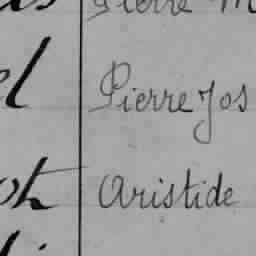 Pierre
el Pierre Jos
Aristide